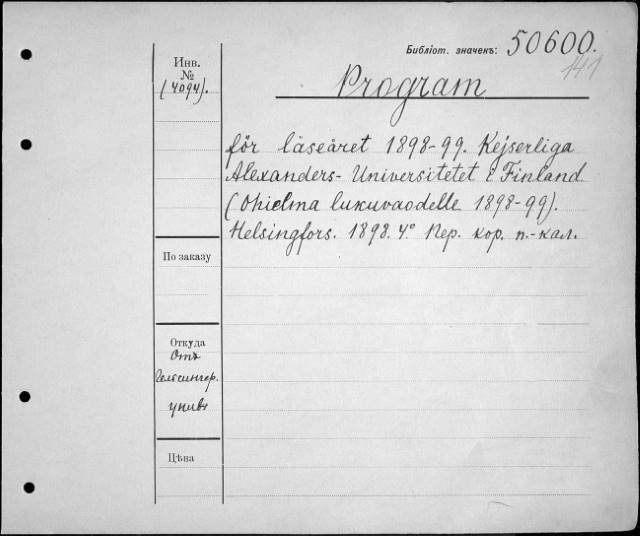 Библіот. значекъ: 50600.
141
Инв.
№
(4094).
Program
för läseåret 1898-99. Kejserliga
Alexanders-Universitetet i Finland
(Ohielma lukuvaodelle 1898-99).
Helsingfors. 1898. 4° Пер. кор. п.-кал.
По заказу
Откуда
Отъ
Гельсингф.
унив.
Цѣна